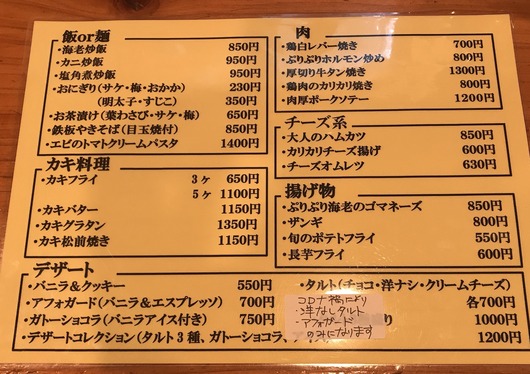 飯or麺
・海老炒飯 850円
・カニ炒飯 950円
・塩角煮炒飯 950円
・おにぎり(サケ・梅・おかか) 230円
(明太子・すじこ) 350円
・お茶漬け(葉わさび・サケ・梅) 650円
・鉄板やきそば(目玉焼付) 850円
・エビのトマトクリームパスタ 1400円
カキ料理
・カキフライ 3ヶ 650円
5ヶ 1100円
・カキバター 1150円
・カキグラタン 1350円
・カキ松前焼き 1150円
肉
・鶏白レバー焼き 700円
・ぷりぷりホルモン炒め 800円
・厚切り牛タン焼き 1300円
・鶏肉のカリカリ焼き 800円
・肉厚ポークソテー 1200円
チーズ系
・大人のハムカツ 850円
・カリカリチーズ揚げ 600円
・チーズオムレツ 630円
揚げ物
・ぷりぷり海老のゴマネーズ 850円
・ザンギ 800円
・旬のポテトフライ 550円
・長芋フライ 600円
デザート
・バニラ&クッキー 550円
・アフォガード(バニラ&エスプレッソ) 700円
・ガトーショコラ(バニラアイス付き) 750円
・デザートコレクション(タルト3種、ガトーショコラ、 1200円
・タルト(チョコ・洋ナシ・クリームチーズ)
各700円
り 1000円
コロナ禍により
・洋なしタルト
・アフォガード
のみになります